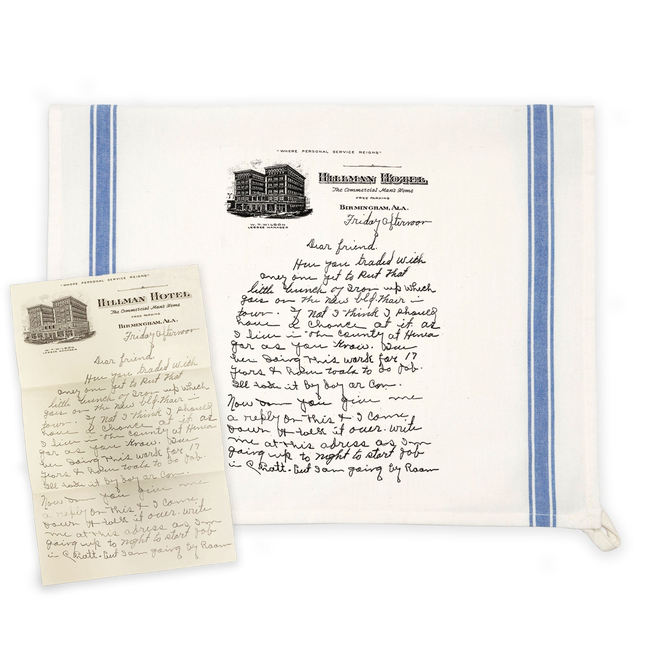 "WHERE PERSONAL SERVICE REIGNS"
HILLMAN HOTEL
The Commercial Man's Home
FREE PARKING
BIRMINGHAM, ALA.
W. T. WILSON
LESSEE MANAGER
Friday afternoon
Dear friend.
Hav you traded with
aney one yet to Put that
little bunch of Iron up which
goes on the new blf. thair in
town. If not I think I should
have a chance at it as
I live in the county at
far as you know. Hav
ben doing this work for 17
years & hav tools to do job.
Ill take it by day or Con.
Now you give me
a reply on this & I come
down & talk it over. write
me at this adress as I'm
going up to night to start job
in Pratt. But I am going by Room
"WHERE PERSONAL SERVICE REIGNS"
HILLMAN HOTEL
The Commercial Man's Home
FREE PARKING
BIRMINGHAM, ALA.
Friday afternoon
Dear friend.
Hav you traded with
aney one yet to Put that
little bunch of Iron up which
goes on the new blf. thair in
town. If not I think I should
have a chance at it as
I live in the county at
far as you know. Hav
ben doing this work for 17
years & hav tools to do job.
Ill take it by day or Con.
Now you give me
a reply on this & I come
down & talk it over. write
me at this adress as I'm
going up to night to start job
in Pratt. But I am going by Room